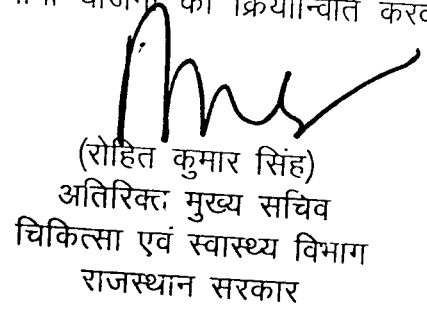 को क्रियान्वित
(रोहित कुमार सिंह)
अतिरिक्त मुख्य सचिव
चिकित्सा एवं स्वास्थ्य विभाग
राजस्थान सरकार